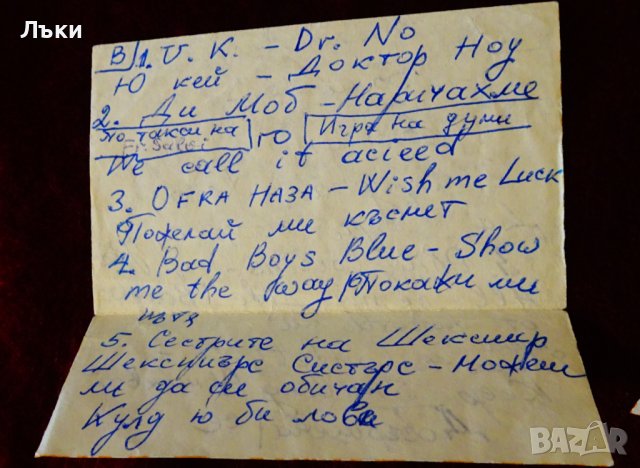 Лъки
В/1. U. K. - Dr. No
Ю кей - Доктор Ноу
2. Ди Моб - Наричахме
го
По-такси на
Игра на думи
We call it acieed
3. OFRA HAZA - Wish me Luck
Пожелай ми късмет
4. Bad Boys Blue - Show
me the way/Покажи ми
пътя
5. Сестрите на Шекспир
Шекспиърс Систърс - Можеш
ли да си обичан
Кулд ю би лова
bazar